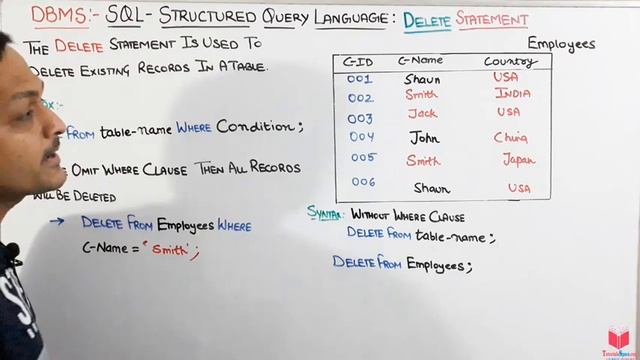 DBMS:- SQL- STRUCTURED QUERY LANGUAGE: DELETE STATEMENT
THE DELETE STATEMENT IS USED TO
DELETE EXISTING RECORDS IN A TABLE.
FROM table-name WHERE Condition;
OMIT WHERE CLAUSE THEN ALL RECORDS
WILL BE DELETED
→ DELETE FROM Employees WHERE
C-Name = 'Smith';
Employees
C-ID C-Name Country
001 Shaun USA
002 Smith INDIA
003 Jack USA
004 John China
005 Smith Japan
006 Shaun USA
SYNTAX: WITHOUT WHERE CLAUSE
DELETE FROM table-name;
DELETE FROM Employees;